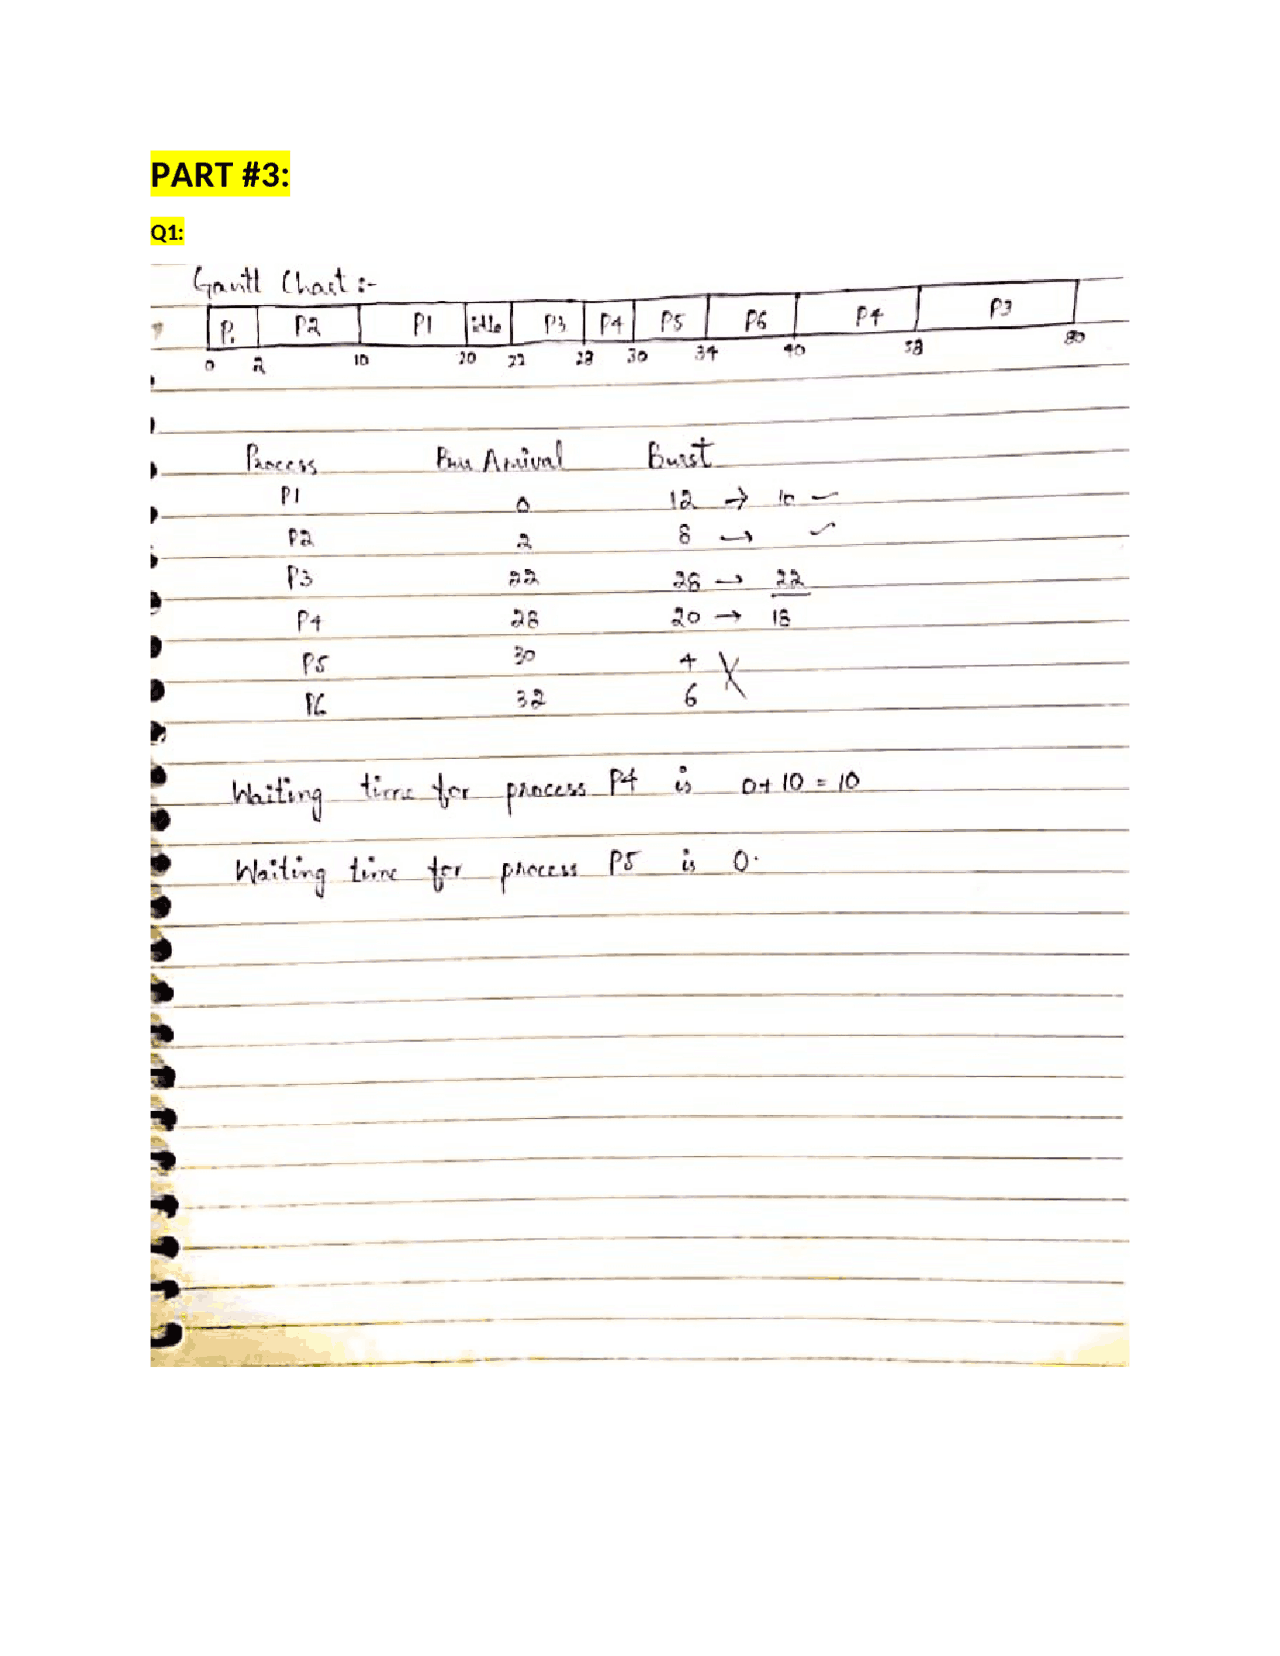 PART #3:
Q1:
Gantt Chart :-
P1 P2 P1 idle P3 P4 P5 P6 P4 P3
0 2 10 20 22 28 30 34 40 58 80
Process Arrival Burst
P1 0 12 → 10
P2 2 8 →
P3 22 28 → 22
P4 28 20 → 18
P5 30 4
P6 32 6
Waiting time for process P4 is 0+10=10
Waiting time for process P5 is 0.